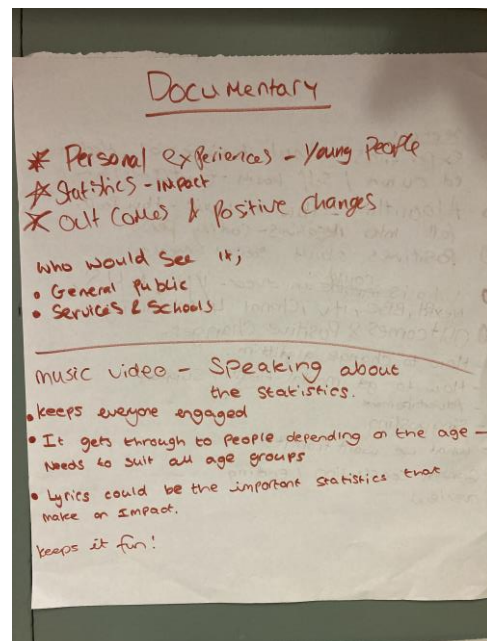 Documentary
* Personal experiences - Young People
* Statistics - impact
* Out Comes & Positive Changes
who would See it;
• General public
• Services & Schools
music video - Speaking about
the statistics.
• keeps everyone engaged
• It gets through to people depending on the age -
Needs to suit all age groups
• Lyrics could be the important statistics that
make an Impact.
keeps it fun!